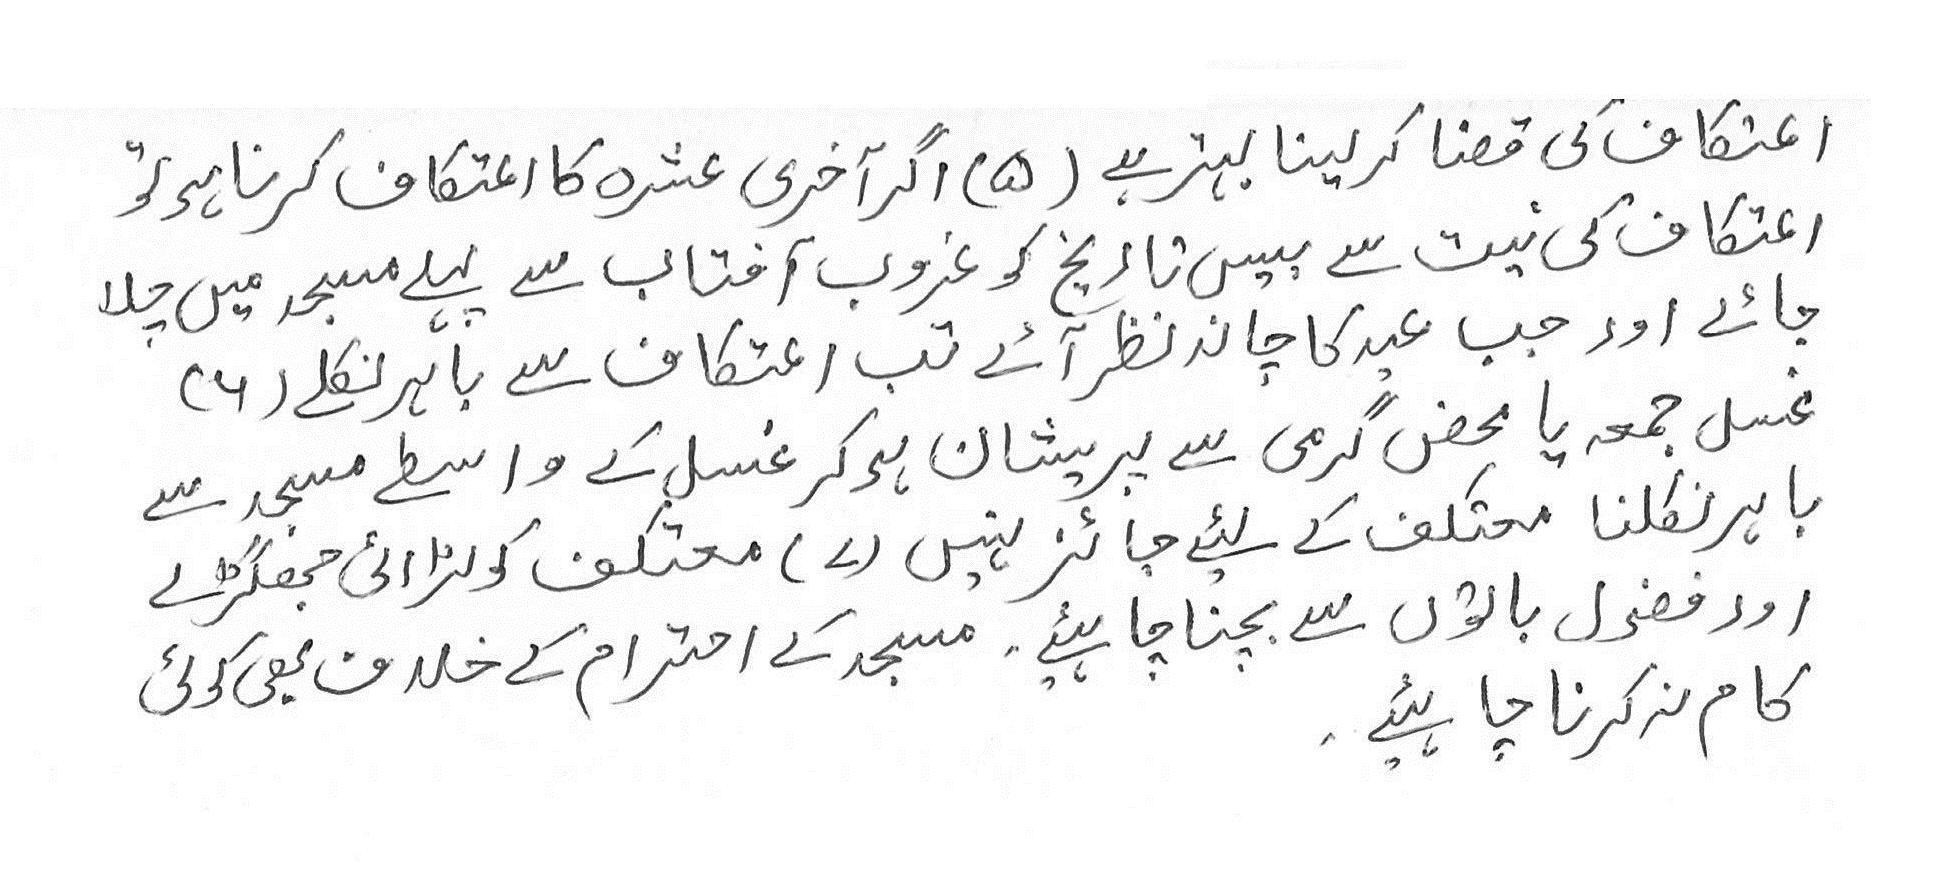 اعتکاف کی قضا کر لینا بہتر ہے (۵) اگر آخری عشرہ کا اعتکاف کرنا ہو تو
اعتکاف کی نیت سے بیس تاریخ کو غروب آفتاب سے پہلے مسجد میں چلا
جائے اور جب عید کا چاند نظر آئے تب اعتکاف سے باہر نکلے (۶)
غسل جمعہ یا محض گرمی سے پریشان ہو کر غسل کے واسطے مسجد سے
باہر نکلنا معتکف کے لئے جائز نہیں (۷) معتکف کو لڑائی جھگڑے
اور فضول باتوں سے بچنا چاہیئے۔ مسجد کے احترام کے خلاف بھی کوئی
کام نہ کرنا چاہیئے۔